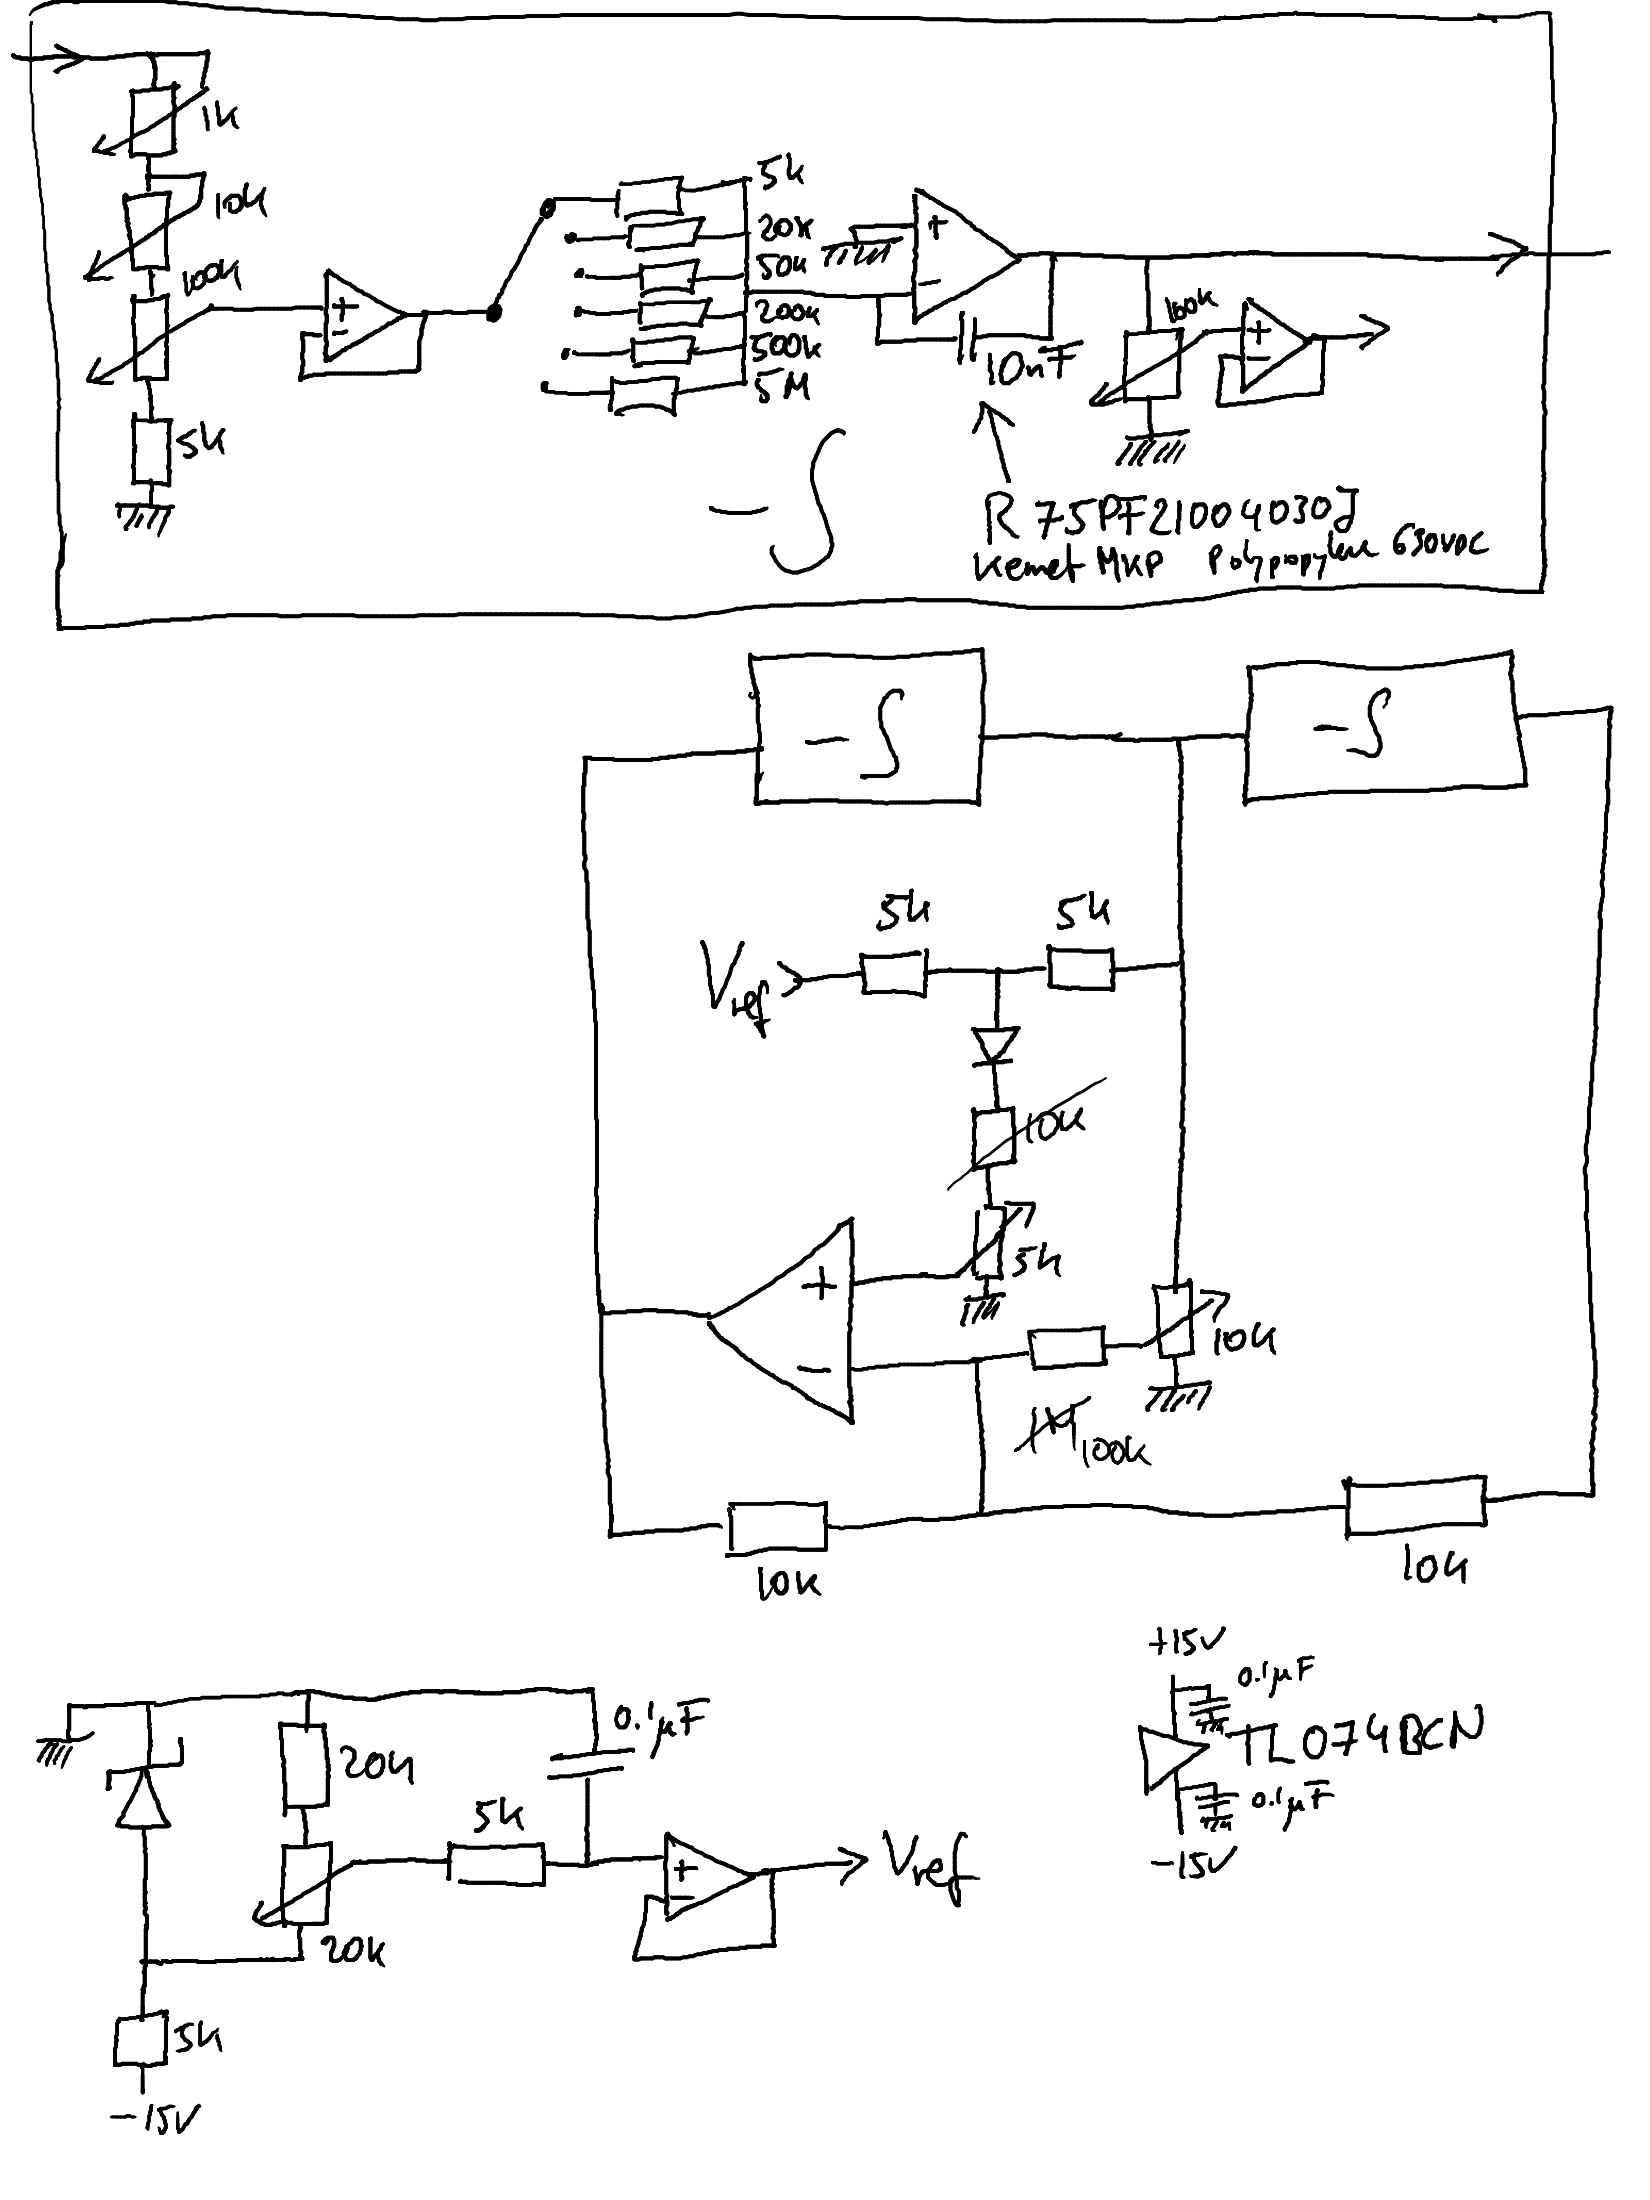 1K
10K
100K
5K
+
-
5K
20K
50K
200K
500K
5M
+
-
10nF
100K
+
-
-∫
R75PF21004030J
Kemet MKP Polypropylene 630VDC
-∫
-∫
5K
5K
Vref
10K
5K
+
-
10K
1M
100K
10K
10K
+15V
0.1μF
TL074BCN
0.1μF
-15V
0.1μF
20K
5K
+
-
Vref
20K
5K
-15V